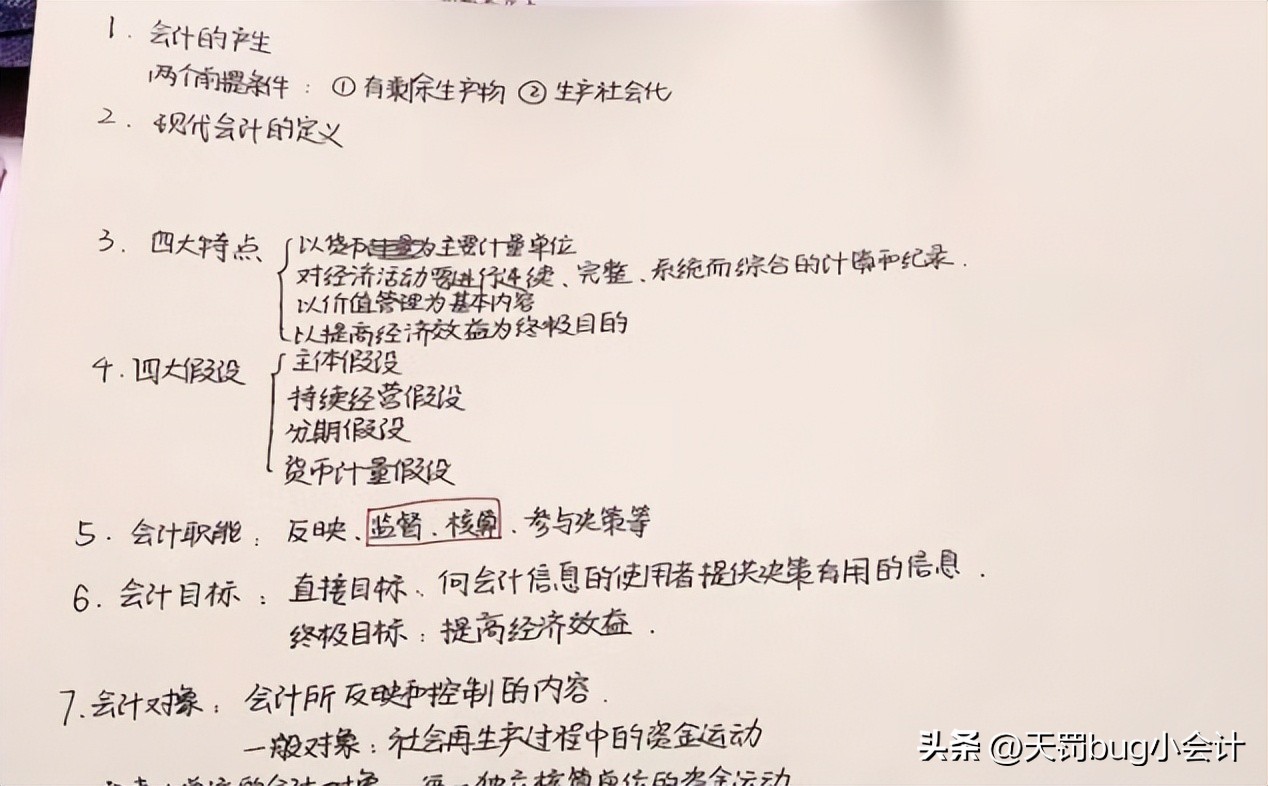 1. 会计的产生
两个前提条件：① 有剩余生产物 ② 生产社会化
2. 现代会计的定义
3. 四大特点
以货币为主要计量单位
对经济活动要进行连续、完整、系统而综合的计算和纪录.
以价值管理为基本内容
以提高经济效益为终极目的
4. 四大假设
主体假设
持续经营假设
分期假设
货币计量假设
5. 会计职能：反映、监督、核算、参与决策等
6. 会计目标：直接目标、向会计信息的使用者提供决策有用的信息.
终极目标：提高经济效益.
7. 会计对象：会计所反映和控制的内容.
一般对象：社会再生产过程中的资金运动
单位的会计对象 每一独立核算单位的资金运动
头条 @天罚bug小会计